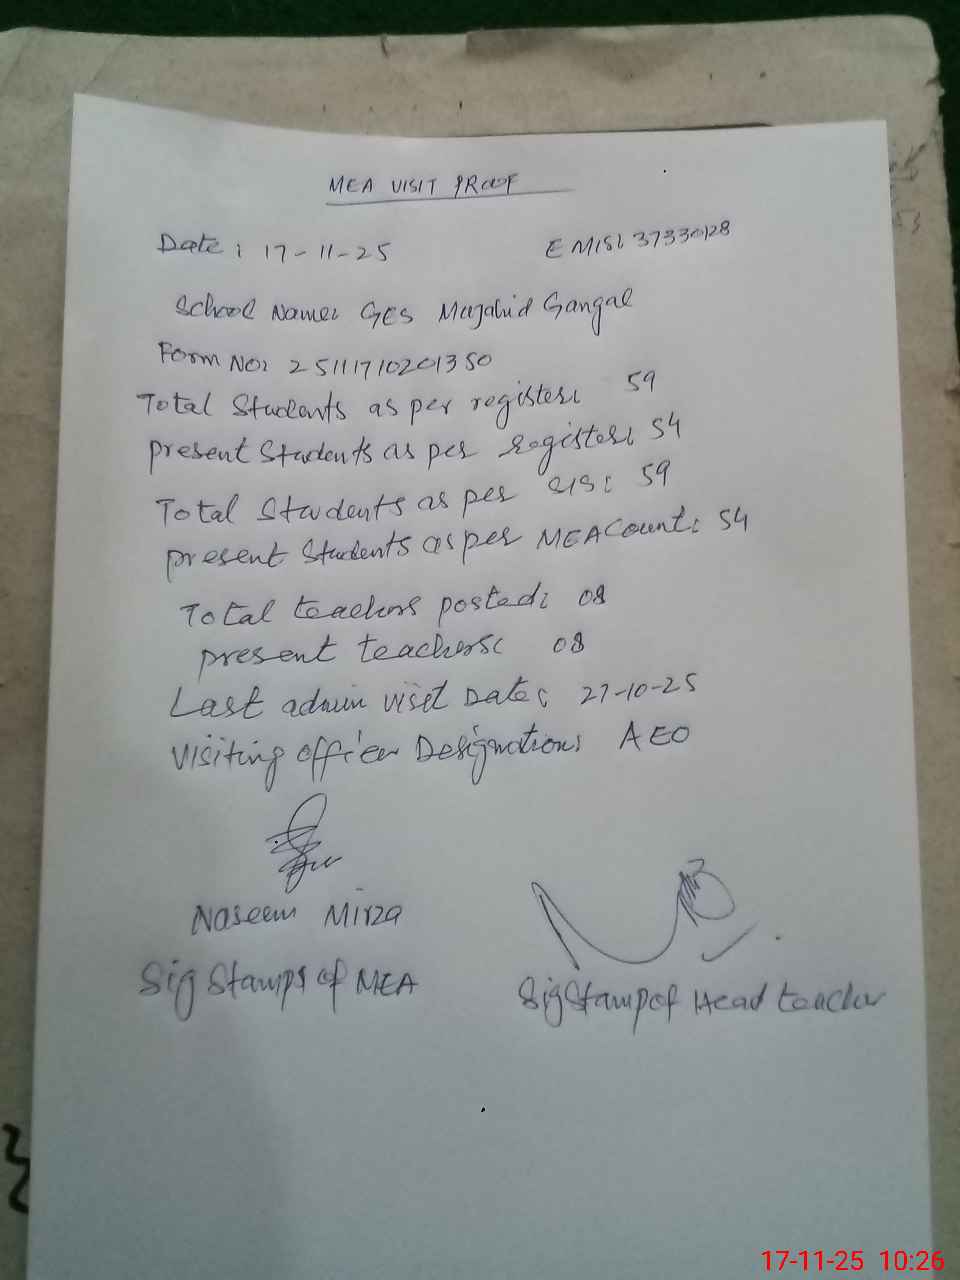 MEA VISIT PROOF
Date: 17-11-25 EMIS: 37330128
School Name: GES Mujahid Gangal
Form No: 25111710201350
Total Students as per register: 59
present Students as per register: 54
Total Students as per SIS: 59
present Students as per MEA Count: 54
Total teachers posted: 08
present teachers: 08
Last admin visit Date: 27-10-25
Visiting officer Designation: AEO
Naseem Mirza
Sig Stamps of MEA
Sig Stamp of Head teacher
17-11-25 10:26